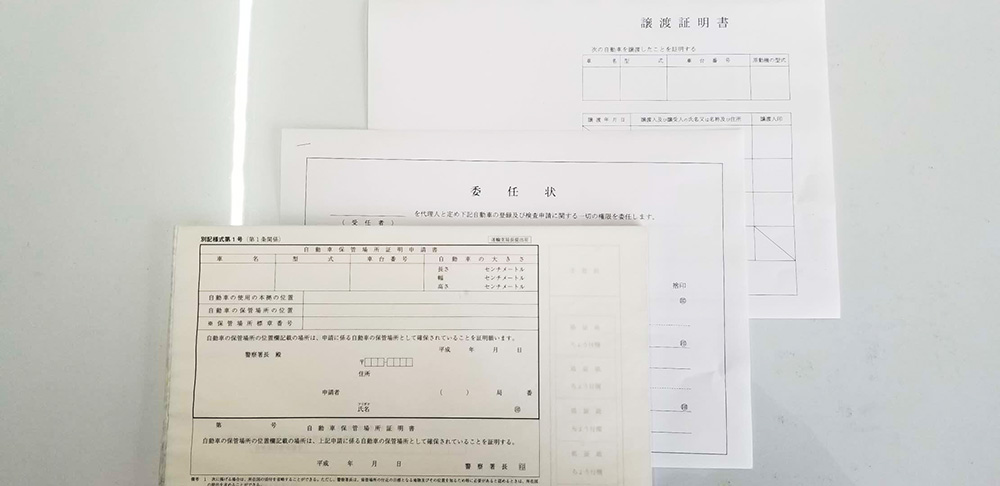 譲渡証明書
次の自動車を譲渡したことを証明する
車名 型式 車台番号 原動機の型式
譲渡年月日 譲渡人及び譲受人の氏名又は名称及び住所 譲渡人印
委任状
を代理人と定め下記自動車の登録及び検査申請に関する一切の権限を委任します。
(受任者)
捨印
㊞
㊞
㊞
別記様式第1号(第1条関係)
自動車保管場所証明申請書
車名 型式 車台番号 自動車の大きさ
長さ センチメートル
幅 センチメートル
高さ センチメートル
自動車の使用の本拠の位置
自動車の保管場所の位置
※保管場所標章番号
自動車の保管場所の位置欄記載の場所は、申請に係る自動車の保管場所として確保されていることを証明願います。
平成 年 月 日
警察署長 殿
〒
住所
申請者 ( ) 局 番
氏名 ㊞
第 号 自動車保管場所証明書
自動車の保管場所の位置欄記載の場所は、上記申請に係る自動車の保管場所として確保されていることを証明する。
平成 年 月 日
警察署長 印